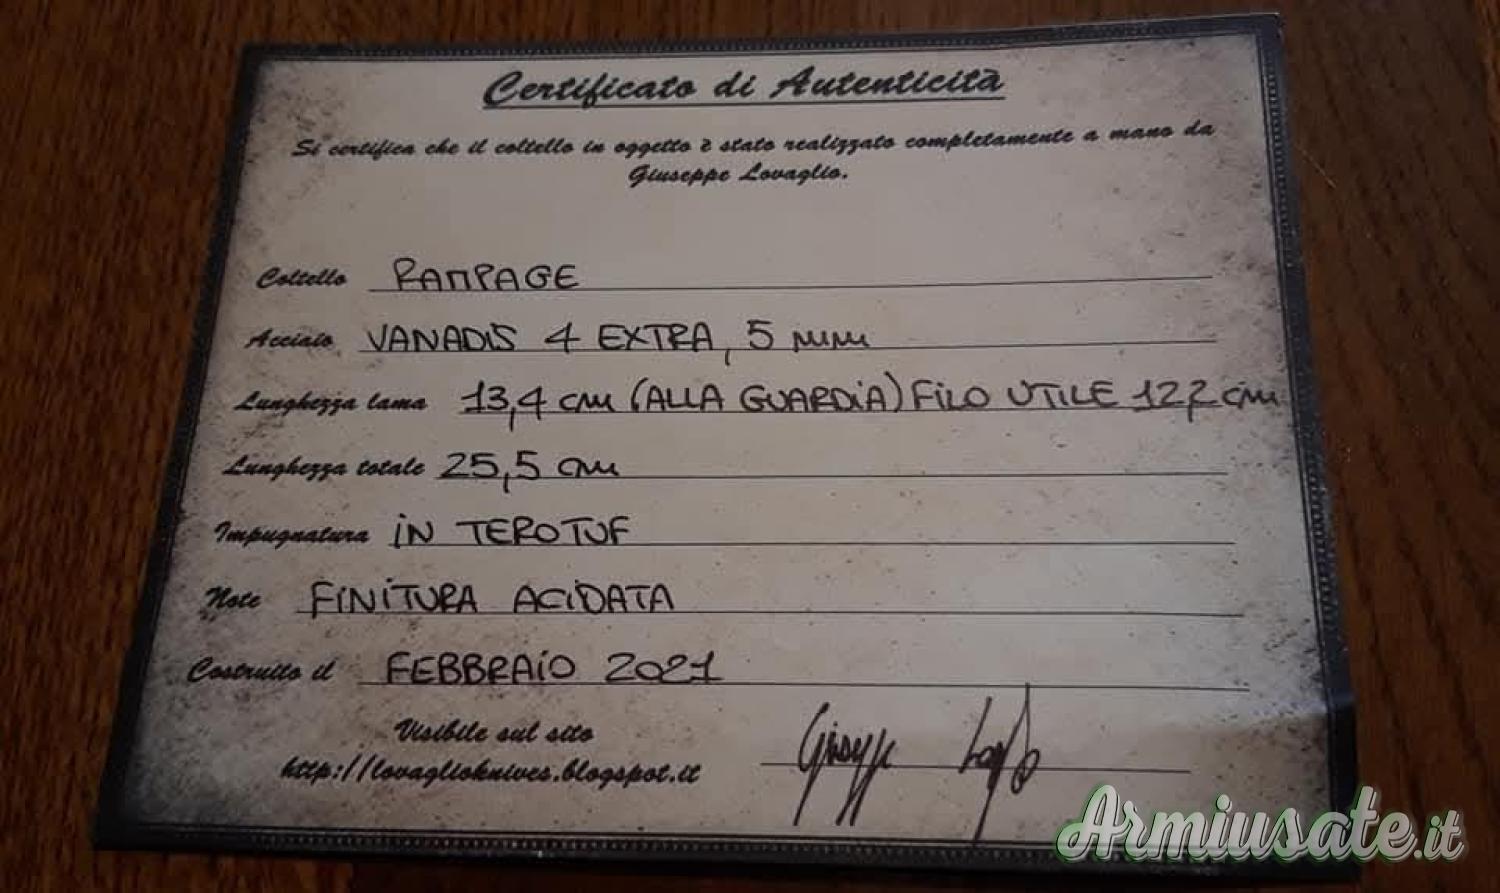 Certificato di Autenticità
Si certifica che il coltello in oggetto è stato realizzato completamente a mano da
Giuseppe Lovaglio.
Coltello RAMPAGE
Acciaio VANADIS 4 EXTRA, 5 mm
Lunghezza lama 13,4 cm (ALLA GUARDIA) FILO UTILE 12,2 cm
Lunghezza totale 25,5 cm
Impugnatura IN TEROTUF
Note FINITURA ACIDATA
Costruito il FEBBRAIO 2021
Visibile sul sito
http://lovaglioknives.blogspot.it
Giuseppe Lovaglio
Armiusate.it